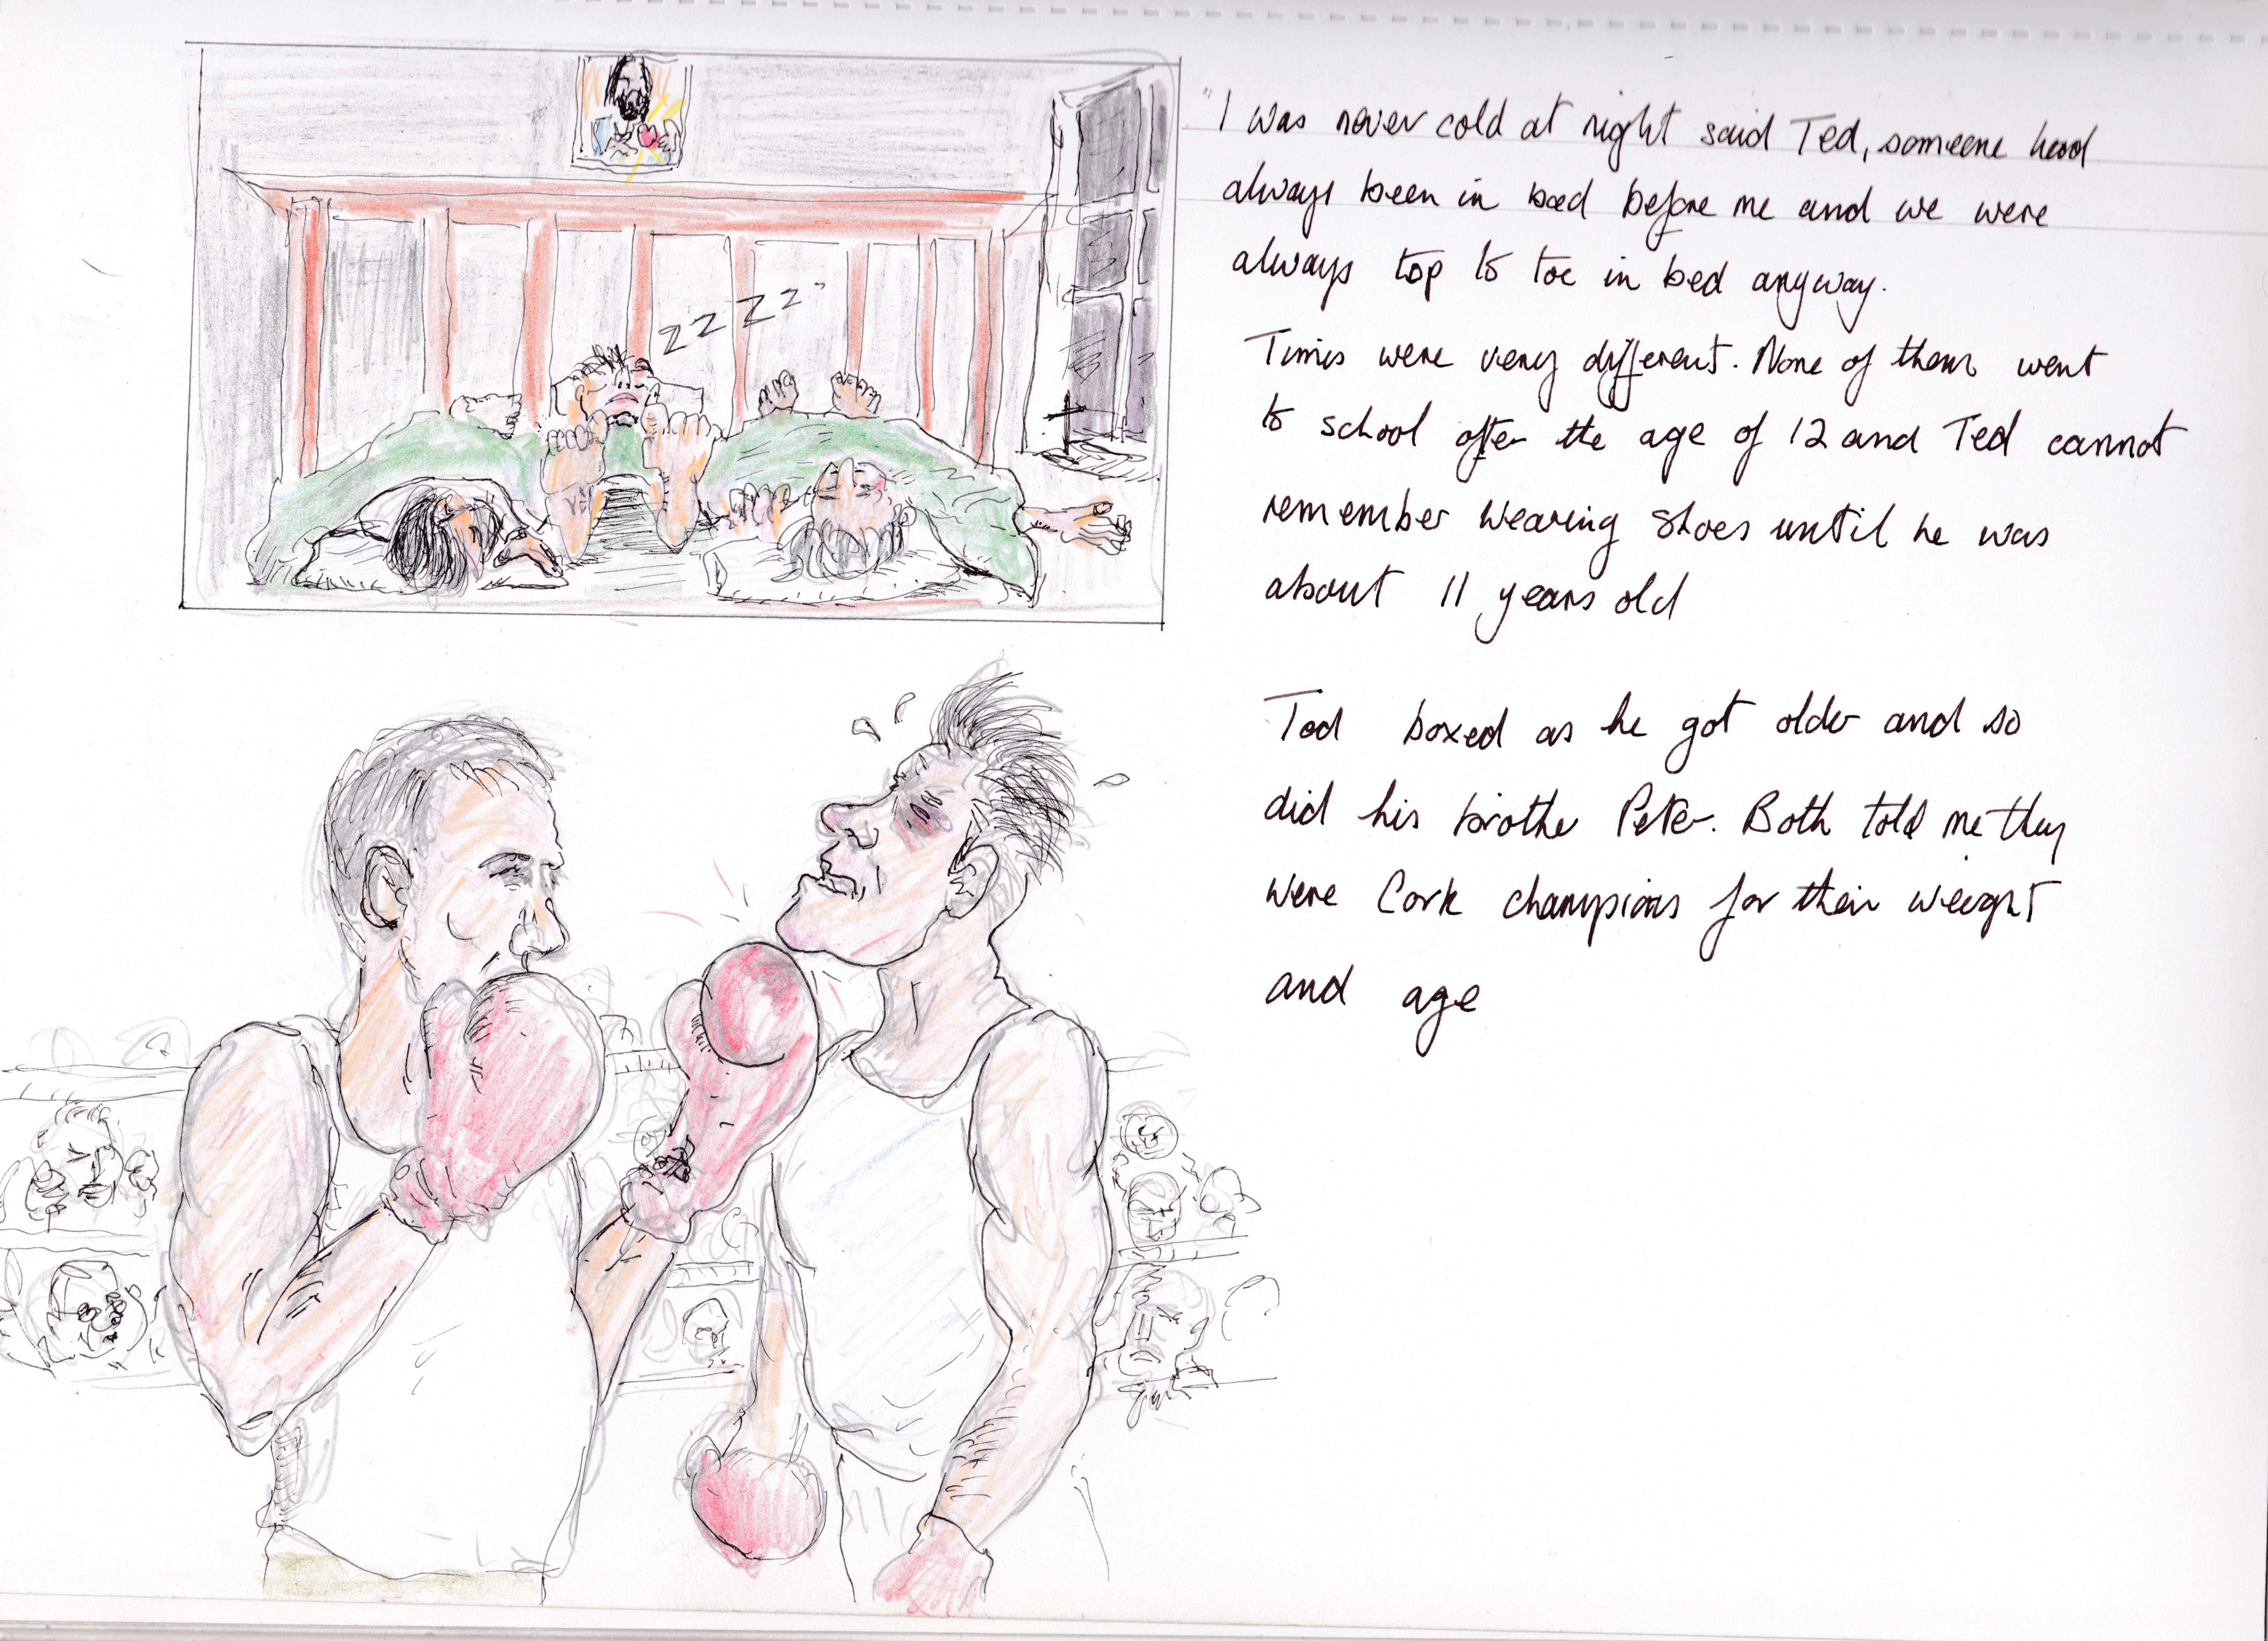 zzzz
"I was never cold at night said Ted, someone had
always been in bed before me and we were
always top to toe in bed anyway.
Times were very different. None of them went
to school after the age of 12 and Ted cannot
remember wearing shoes until he was
about 11 years old
Ted boxed as he got older and so
did his brother Peter. Both told me they
were Cork champions for their weight
and age